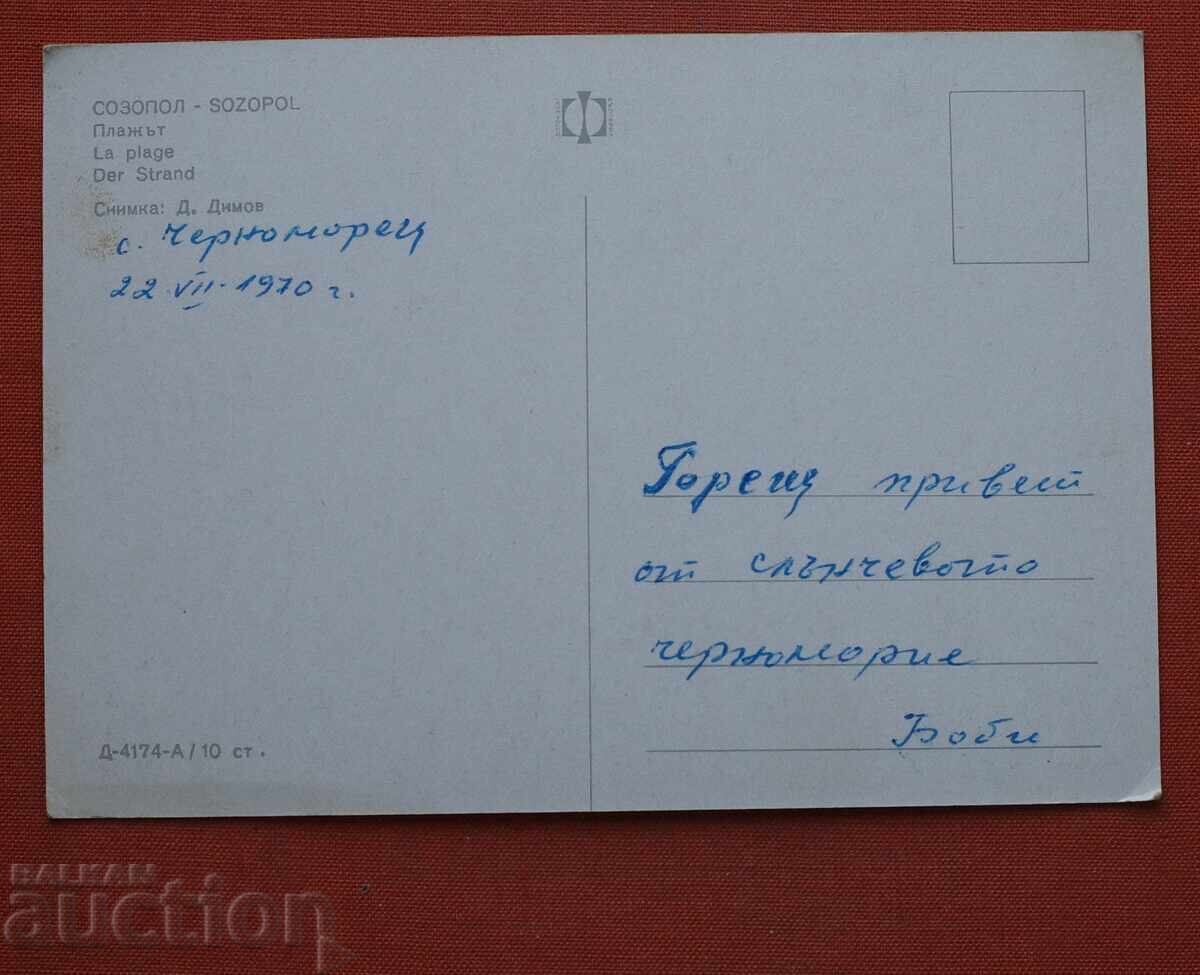 СОЗОПОЛ - SOZOPOL
Плажът
La plage
Der Strand
Снимка: Д. Димов
с. Черноморец
22 VII - 1970 г.
Горещ привет
от слънчевото
черноморие
Боби
Д-4174-А / 10 ст.
BALKAN
auction